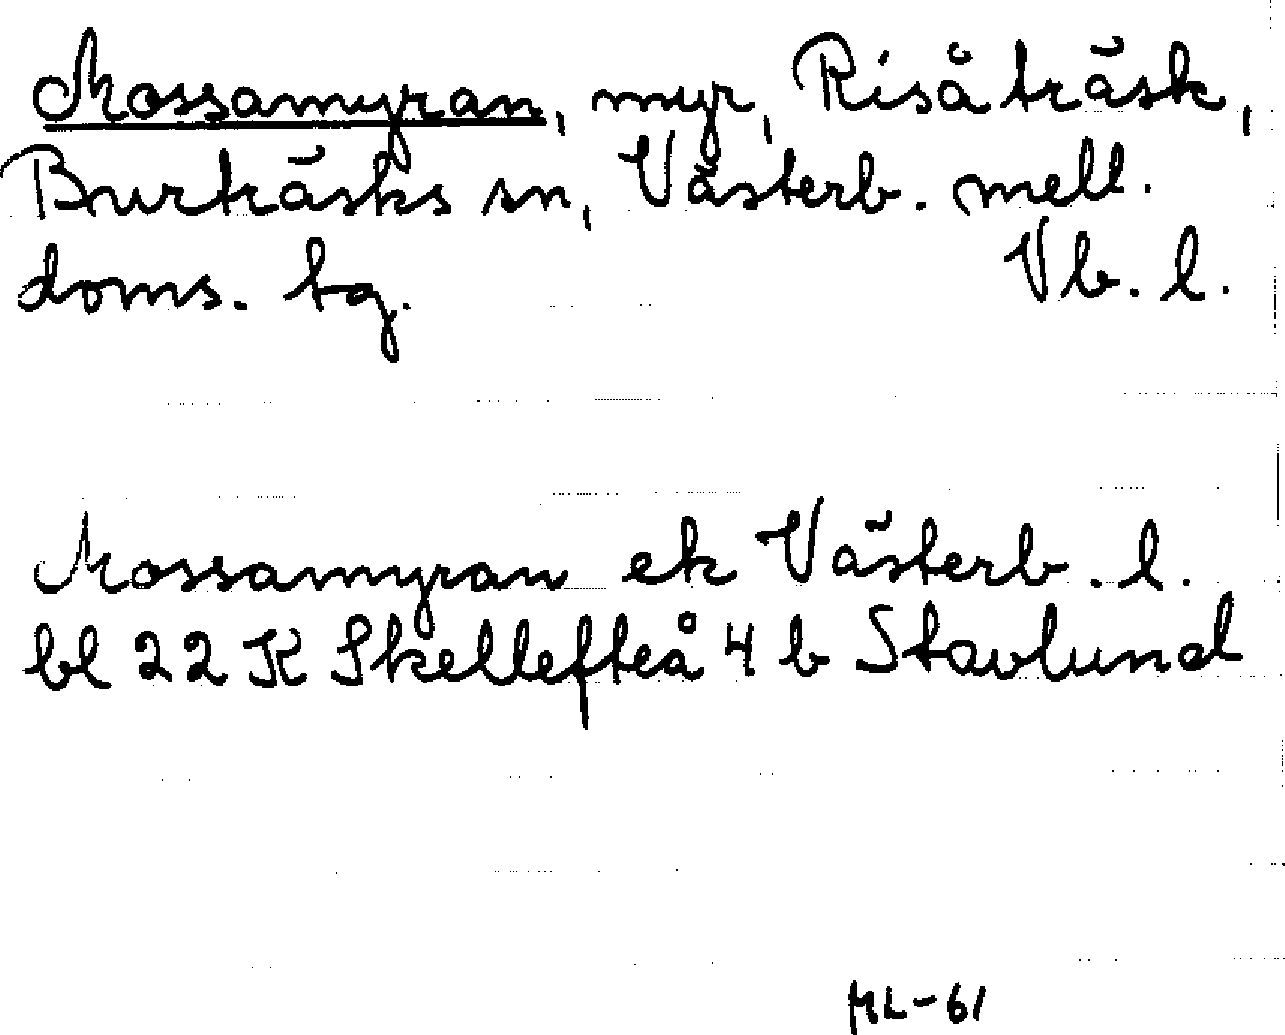 Mossamyran, myr, Risåträsk,
Burträsks sn, Västerb. mell.
doms. tg. Vb. l.
Mossamyran ek Västerb. l.
bl 22 K Skellefteå 4 b Stavlund
ML-61